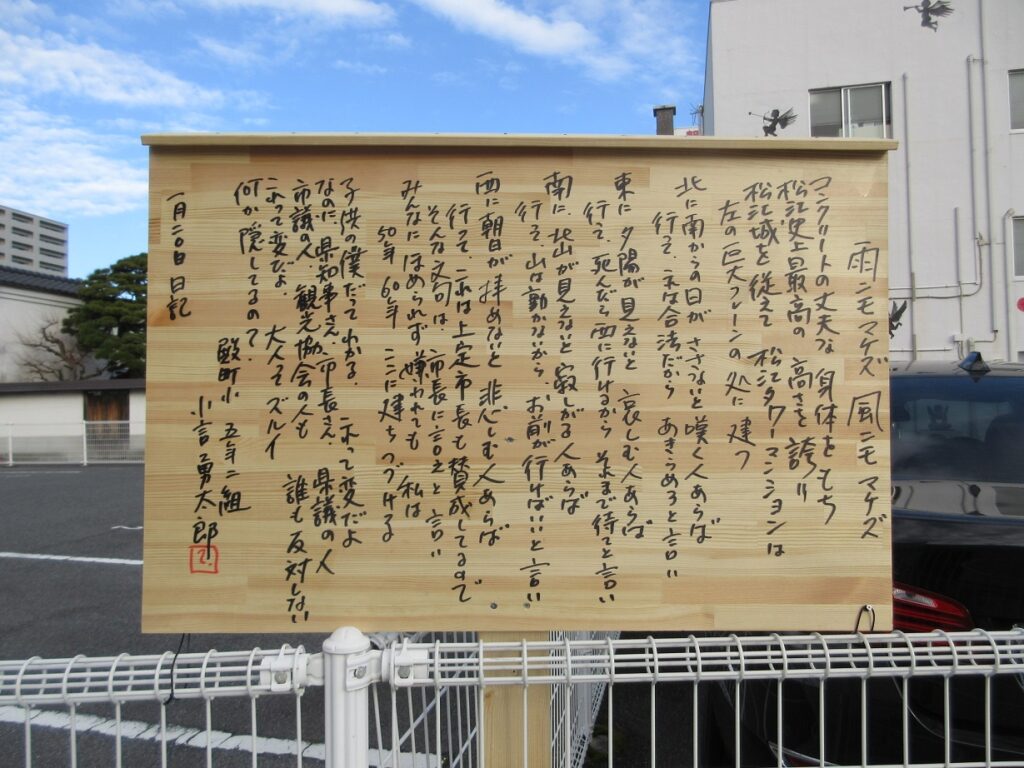 雨ニモマケズ 風ニモマケズ
コンクリートの丈夫な 身体をもち
松江史上最高の 高さを誇り
松江城を従えて 松江タワーマンションは
左の巨大クレーンの処に 建つ
北に南からの日が ささないと嘆く人あらば
行って、これは合法だから あきらめろと言い
東に夕陽が見えないと 哀しむ人あらば
行って、死んだら西に行けるから それまで待てと言い
南に、北山が見えないと 寂しがる人あらば
行って、山は動かないから、お前が行けばいいと言い
西に朝日が拝めないと 悲しむ人あらば
行って、これは上定市長も賛成してるので
そんな文句は、市長に言えと 言い
みんなにほめられず 嫌われても 私は
50年 60年 ここに建ちつづける
子供の僕だってわかる、これって変だよ
なのに、県知事さん、市長さん、県議の人
市議の人、観光協会の人も 誰も反対しない
これって変だよ、 大人って ズルイ
何か隠してるの？、
殿町小 五年二組
小言勇太郎
一月二〇日 日記